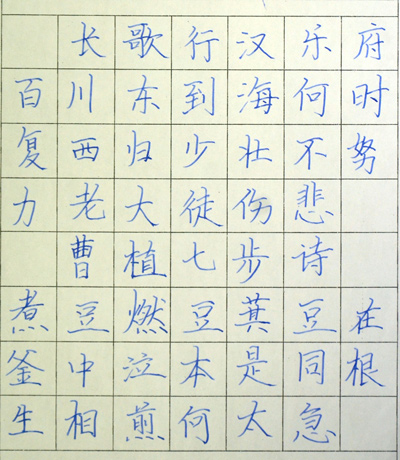 长歌行汉乐府
百川东到海何时
复西归少壮不努
力老大徒伤悲
曹植七步诗
煮豆燃豆萁豆在
釜中泣本是同根
生相煎何太急